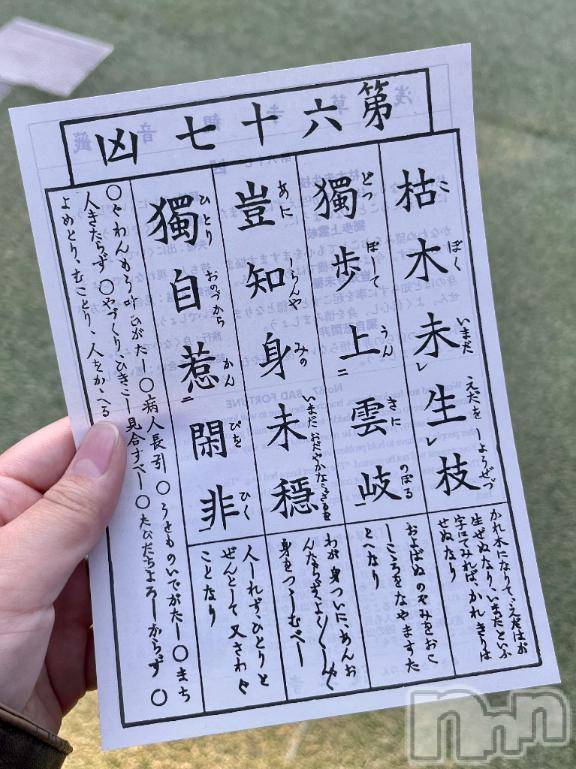 第六十七凶
枯木未生枝
こ ぼく いまだ えだを しょうぜず
かれ木になりて、えだはお
生ぜぬなり、いまだといふ
字にてみれば、かれきりは
せぬなり
獨歩上雲岐
どつ ぽして うん きに のぼる
およばぬのぞみをおこ
しこころをなやますた
とへなり
豈知身未穏
あに しらんや みの いまだおだやかならざるを
わが身ついに、あんお
身をつつしむべし
獨自惹閑非
ひとり おのづから かん ぴを ひく
人しれず、ひとりと
ぜんとして又さわぐ
ことなり
○ぐわんもう叶ひがたし○病人長引○うせものいでがたし○まち
人きたらず○やづくり、ひきこし見合すべし○たびだちよろしからず○
よめとり、むことり、人をかゝへる
浅草寺観音籤
No.67 BAD FORTUNE
nnn